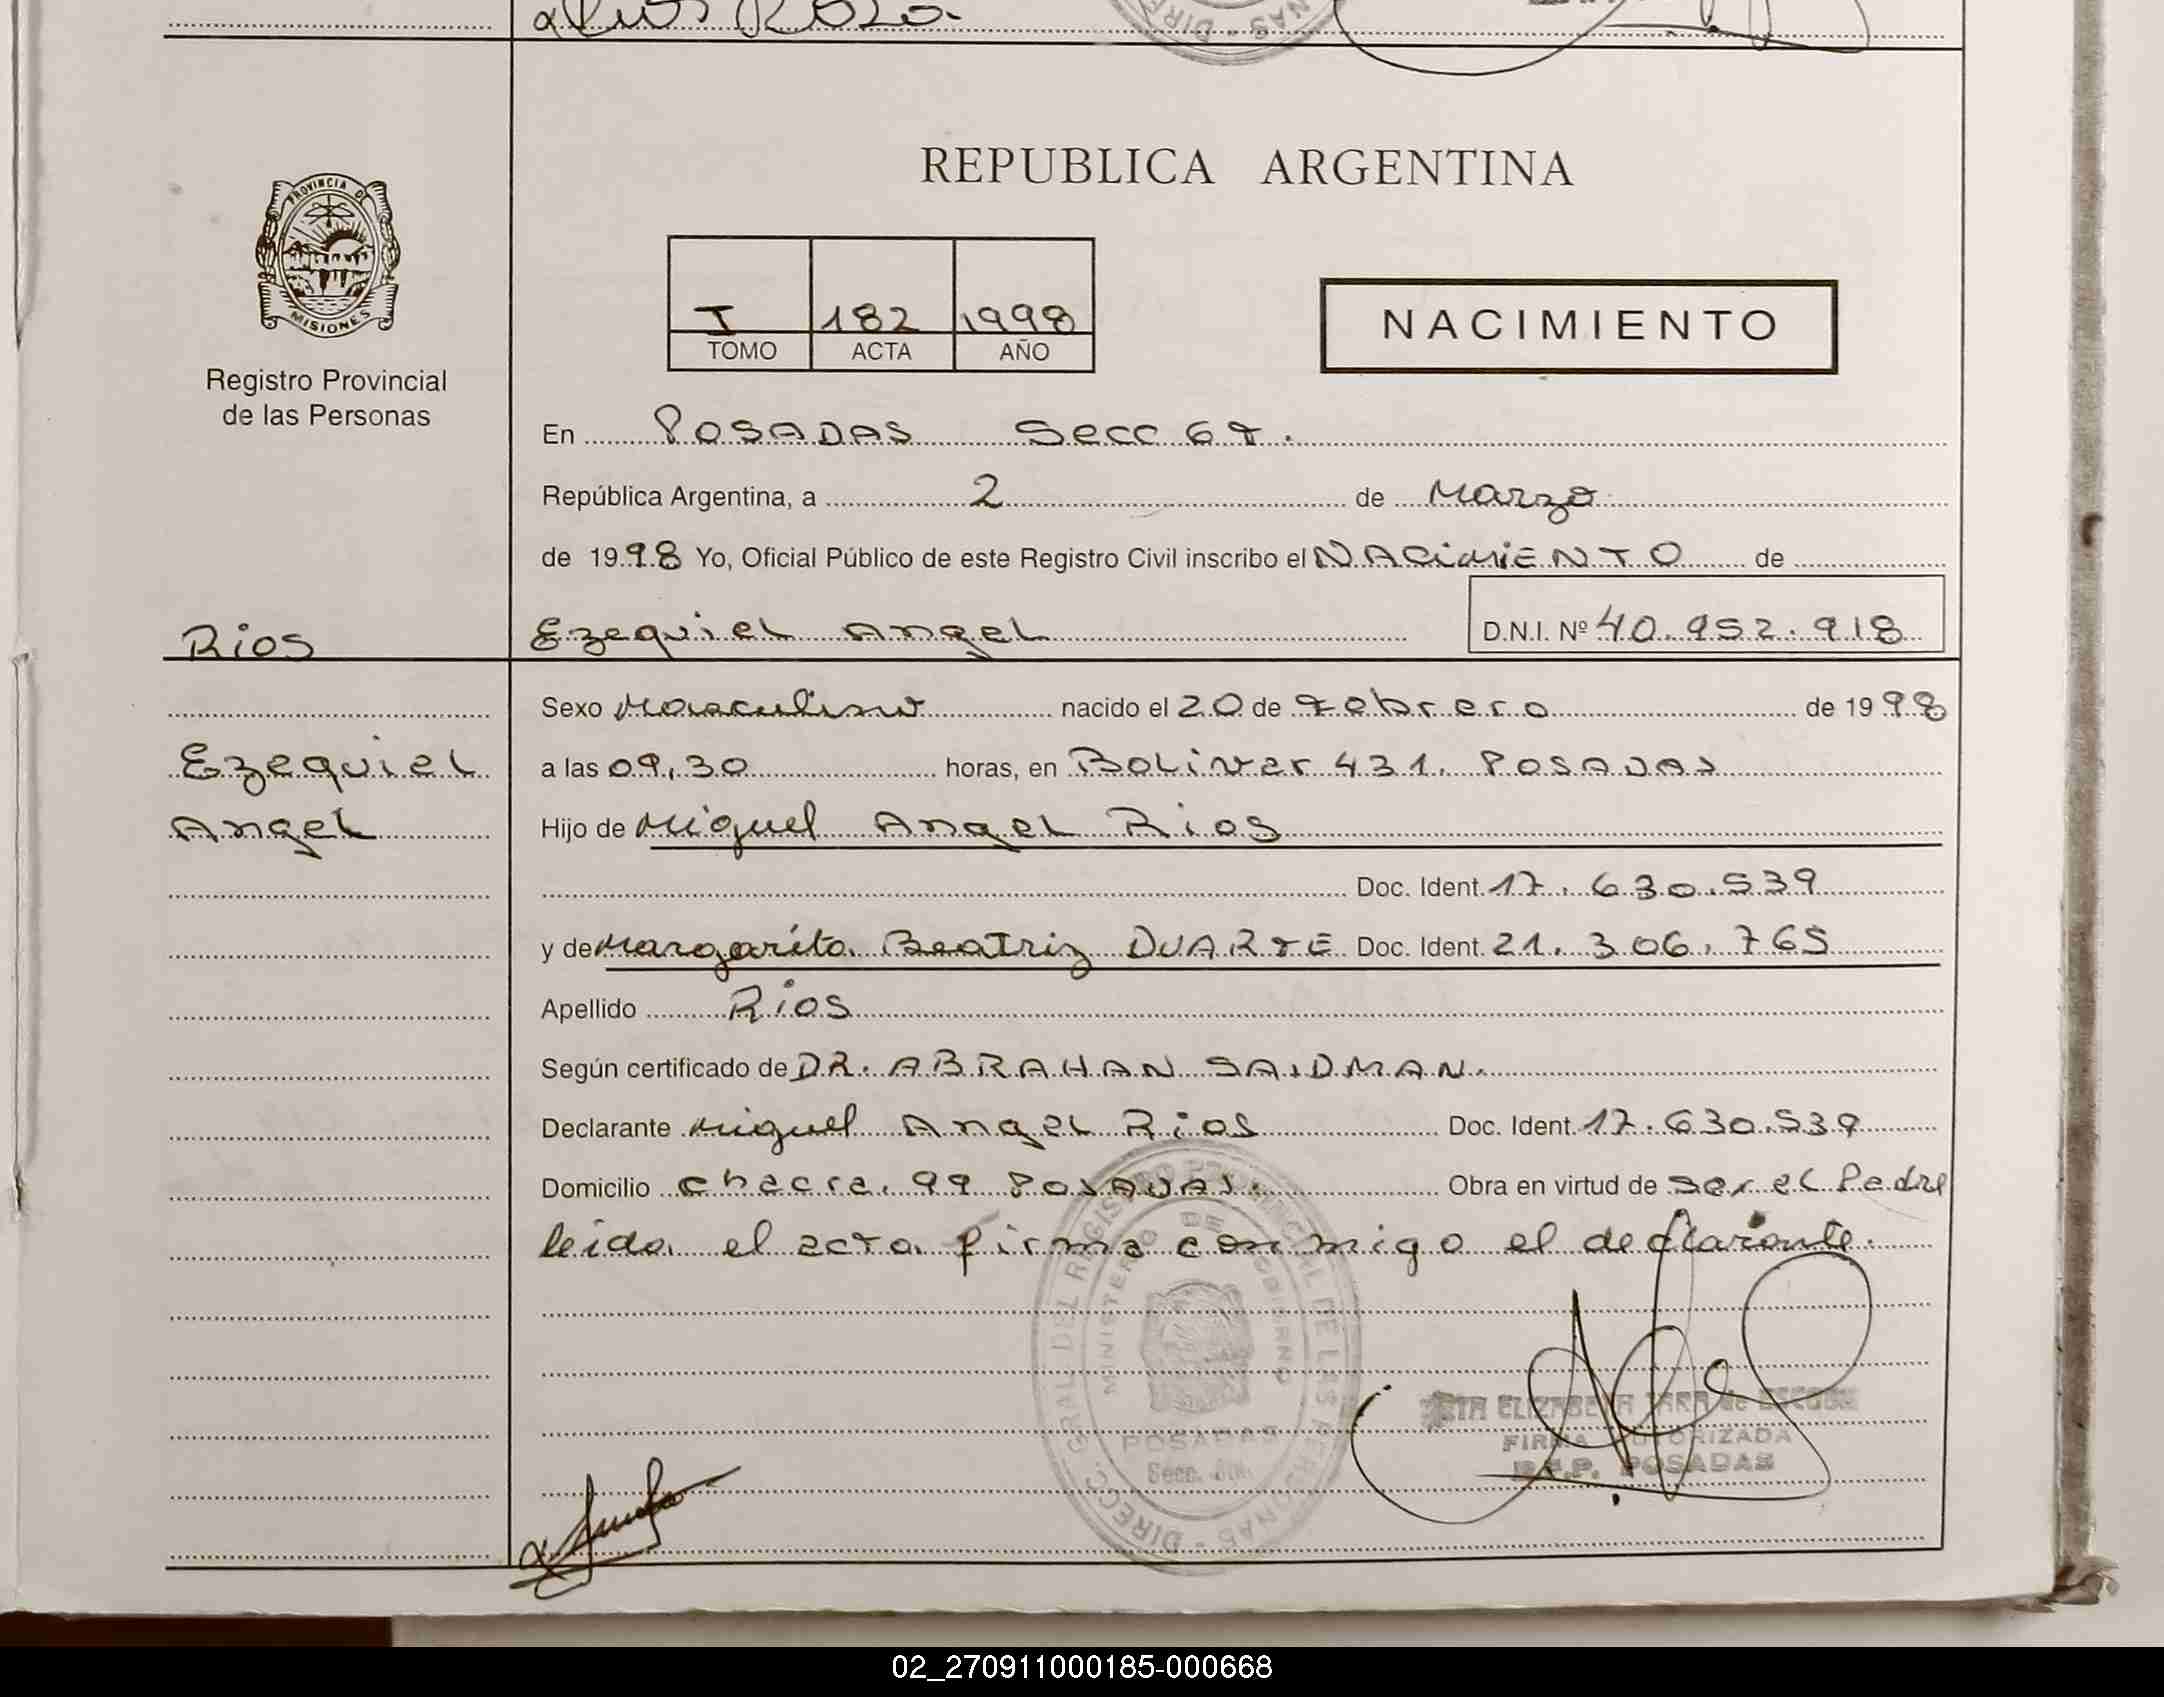 PROVINCIA DE
MISIONES
Registro Provincial
de las Personas
REPUBLICA ARGENTINA
I 182 1998
TOMO ACTA AÑO
NACIMIENTO
En POSADAS Secc 6ª.
República Argentina, a 2 de Marzo
de 1998 Yo, Oficial Público de este Registro Civil inscribo el NACIMIENTO de
Rios Ezequiel Angel D.N.I. Nº 40.952.918
Sexo Masculino nacido el 20 de Febrero de 1998
Ezequiel a las 09,30 horas, en Bolivar 431. POSADAS
Angel Hijo de Miguel Angel Rios
Doc. Ident. 17.630.539
y de Margarita Beatriz DUARTE Doc. Ident. 21.306.765
Apellido Rios
Según certificado de DR. ABRAHAN SAIDMAN.
Declarante Miguel Angel Rios Doc. Ident. 17.630.539
Domicilio Chacra. 99 POSADAS. Obra en virtud de ser el Padre
leida el acta firma conmigo el declarante.
DIRECC. GRAL. DEL REGISTRO PROVINCIAL DE LAS PERSONAS
MINISTERIO DE GOBIERNO
POSADAS
Secc.
ELIZABETH
FIRMA AUTORIZADA
POSADAS
02_270911000185-000668